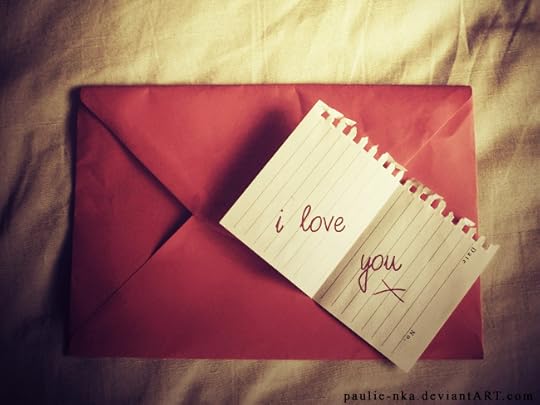 i love
you
x
Date
No.
paulie-nka.deviantART.com